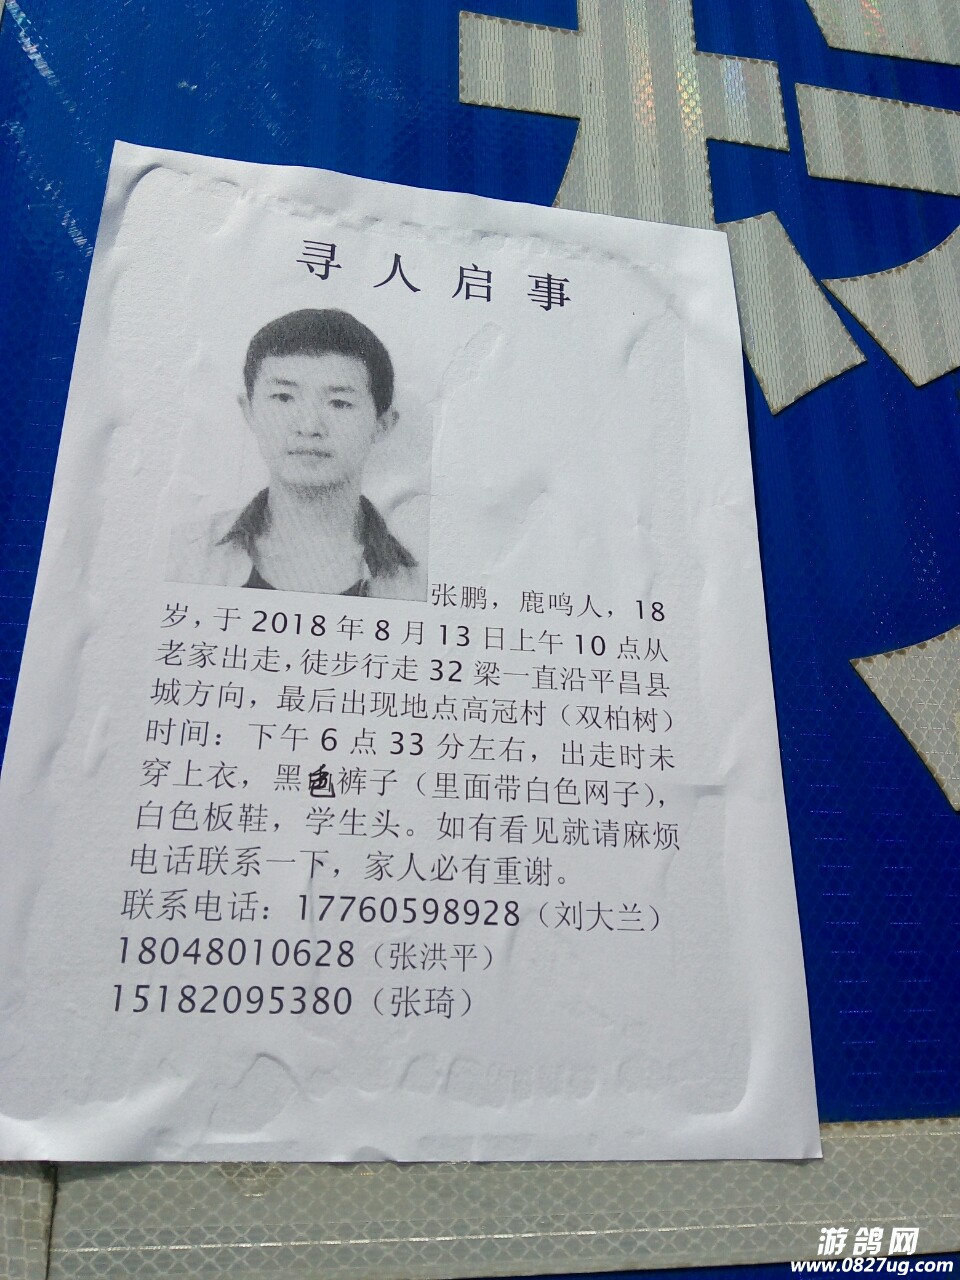 寻人启事
张鹏，鹿鸣人，18
岁，于2018年8月13日上午10点从
老家出走，徒步行走32梁一直沿平昌县
城方向，最后出现地点高冠村（双柏树）
时间：下午6点33分左右，出走时未
穿上衣，黑色裤子（里面带白色网子），
白色板鞋，学生头。如有看见就请麻烦
电话联系一下，家人必有重谢。
联系电话：17760598928（刘大兰）
18048010628（张洪平）
15182095380（张琦）
游鸽网
www.0827ug.com